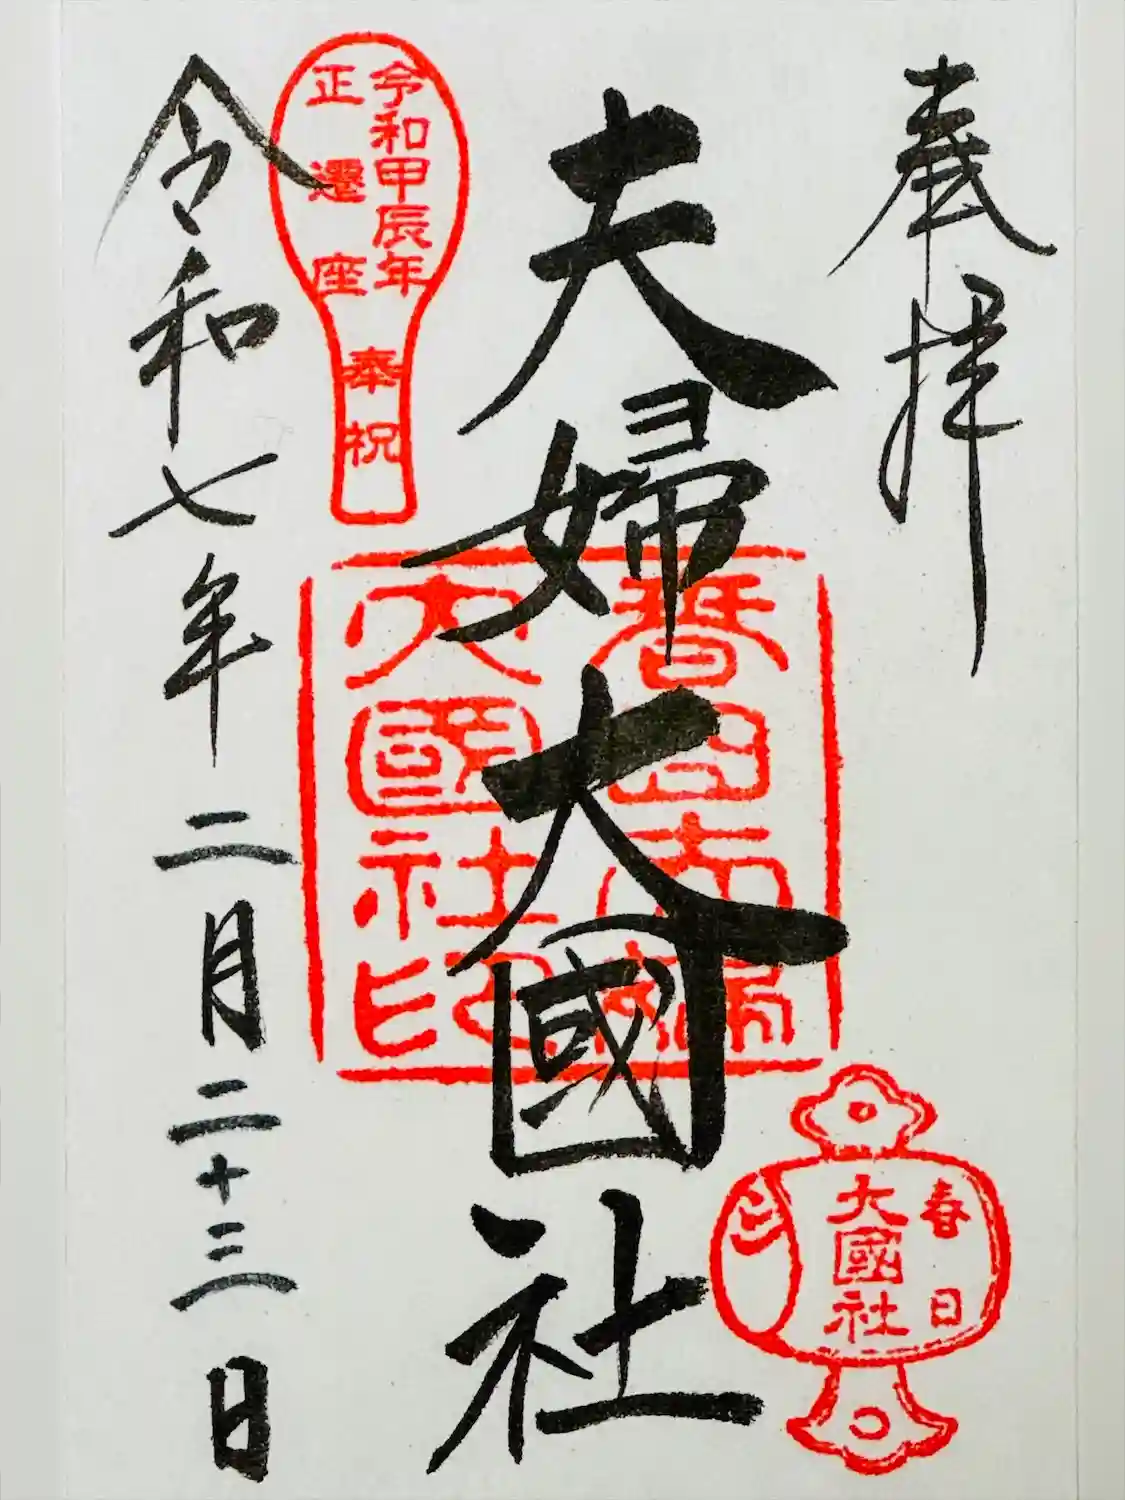 奉拝
夫婦大國社
春日大社
大國社印
令和甲辰年
正遷座
奉祝
春日
大國社
令和七年二月二十三日